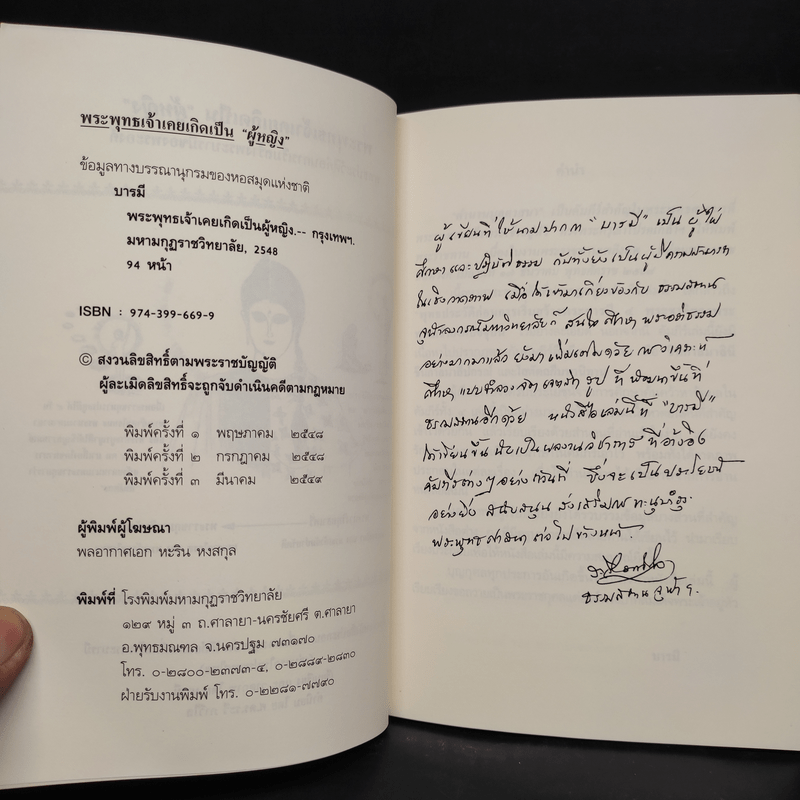 พระพุทธเจ้าเคยเกิดเป็น "ผู้หญิง"
ข้อมูลทางบรรณานุกรมของหอสมุดแห่งชาติ
บารมี
พระพุทธเจ้าเคยเกิดเป็นผู้หญิง.-- กรุงเทพฯ.
มหามกุฏราชวิทยาลัย, 2548
94 หน้า
ISBN : 974-399-669-9
© สงวนลิขสิทธิ์ตามพระราชบัญญัติ
ผู้ละเมิดลิขสิทธิ์จะถูกจับดำเนินคดีตามกฎหมาย
พิมพ์ครั้งที่ ๑ พฤษภาคม ๒๕๔๘
พิมพ์ครั้งที่ ๒ กรกฎาคม ๒๕๔๘
พิมพ์ครั้งที่ ๓ มีนาคม ๒๕๔๙
ผู้พิมพ์ผู้โฆษณา
พลอากาศเอก หะริน หงสกุล
พิมพ์ที่ โรงพิมพ์มหามกุฏราชวิทยาลัย
๑๒๙ หมู่ ๓ ถ.ศาลายา-นครชัยศรี ต.ศาลายา
อ.พุทธมณฑล จ.นครปฐม ๗๓๑๗๐
โทร. ๐-๒๘๐๐-๒๓๗๓-๔, ๐-๒๘๘๙-๒๘๓๐
ฝ่ายรับงานพิมพ์ โทร. ๐-๒๒๘๑-๗๗๙๐
ผู้เขียนที่ใช้นามปากกา "บารมี" เป็นผู้ใฝ่
ศึกษาและปฏิบัติธรรม กับทั้งยังเป็นผู้มีความสามารถ
ในเชิงวาดภาพ เมื่อได้เข้ามาเกี่ยวข้องกับ ธรรมสถาน
จุฬาลงกรณ์มหาวิทยาลัยก็ สนใจศึกษา พระอภิธรรม
อย่างมากมาแล้ว ยังมาเพิ่มเติมด้วยการวิเคราะห์
ศึกษา แบบจำลองจิต เจตสิก รูป ที่พัฒนาขึ้นที่
ธรรมสถานอีกด้วย หนังสือเล่มนี้ที่ "บารมี"
ได้เขียนขึ้น นับเป็นผลงานวิชาการ ที่อ้างอิง
คัมภีร์ต่างๆ อย่างถ้วนถี่ ซึ่งจะเป็นประโยชน์
อย่างยิ่ง สนับสนุน ส่งเสริมการทะนุบำรุง
พระพุทธศาสนา ต่อไปข้างหน้า.
ธรรมสถาน จุฬาฯ.